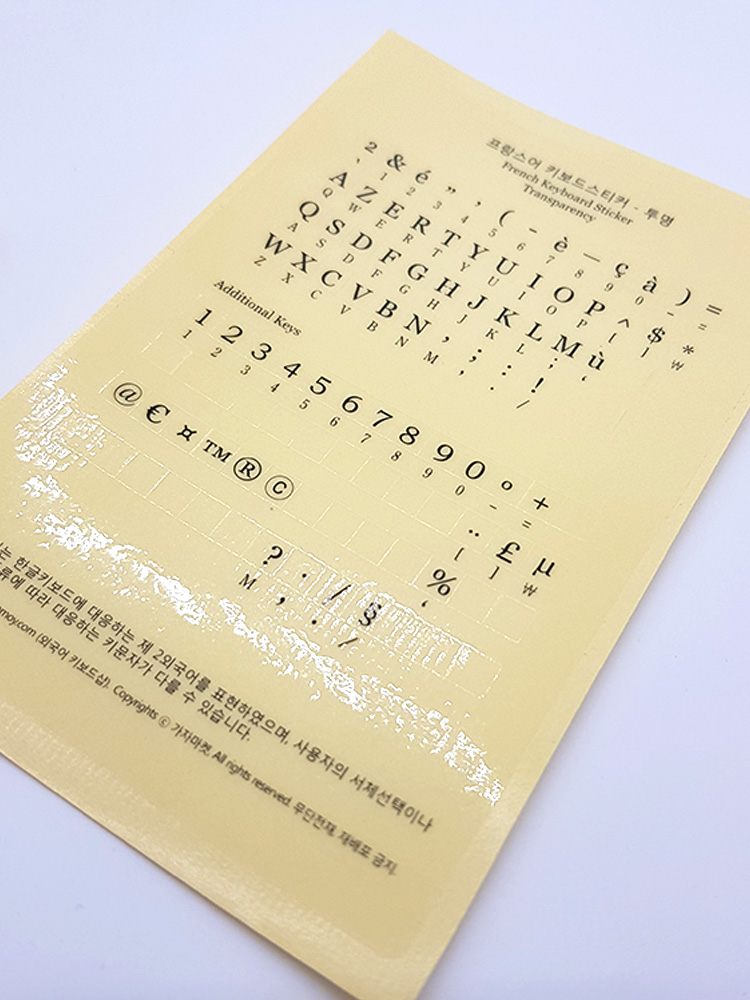 프랑스어 키보드스티커 - 투명
French Keyboard Sticker
Transparency
2 & é " ' ( - è _ ç à ) =
` 1 2 3 4 5 6 7 8 9 0 - =
A Z E R T Y U I O P ^ $ *
Q W E R T Y U I O P [ ] ₩
Q S D F G H J K L M ù
A S D F G H J K L ; '
W X C V B N , ; : !
Z X C V B N M , . /
Additional Keys
1 2 3 4 5 6 7 8 9 0 ° +
1 2 3 4 5 6 7 8 9 0 - =
@ € ¤ ™ ® © ¨ £ µ
[ ] ₩
%
'
? . / §
M , . /
는 한글키보드에 대응하는 제 2외국어를 표현하였으며, 사용자의 서체선택이나
류에 따라 대응하는 키문자가 다를 수 있습니다.
moy.com (외국어 키보드샵). Copyrights ⓒ 가자마켓. All rights reserved. 무단전재, 재배포 금지.